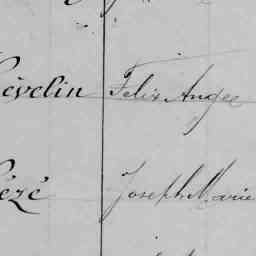 évelin Felix Ange
ézé Joseph Marie